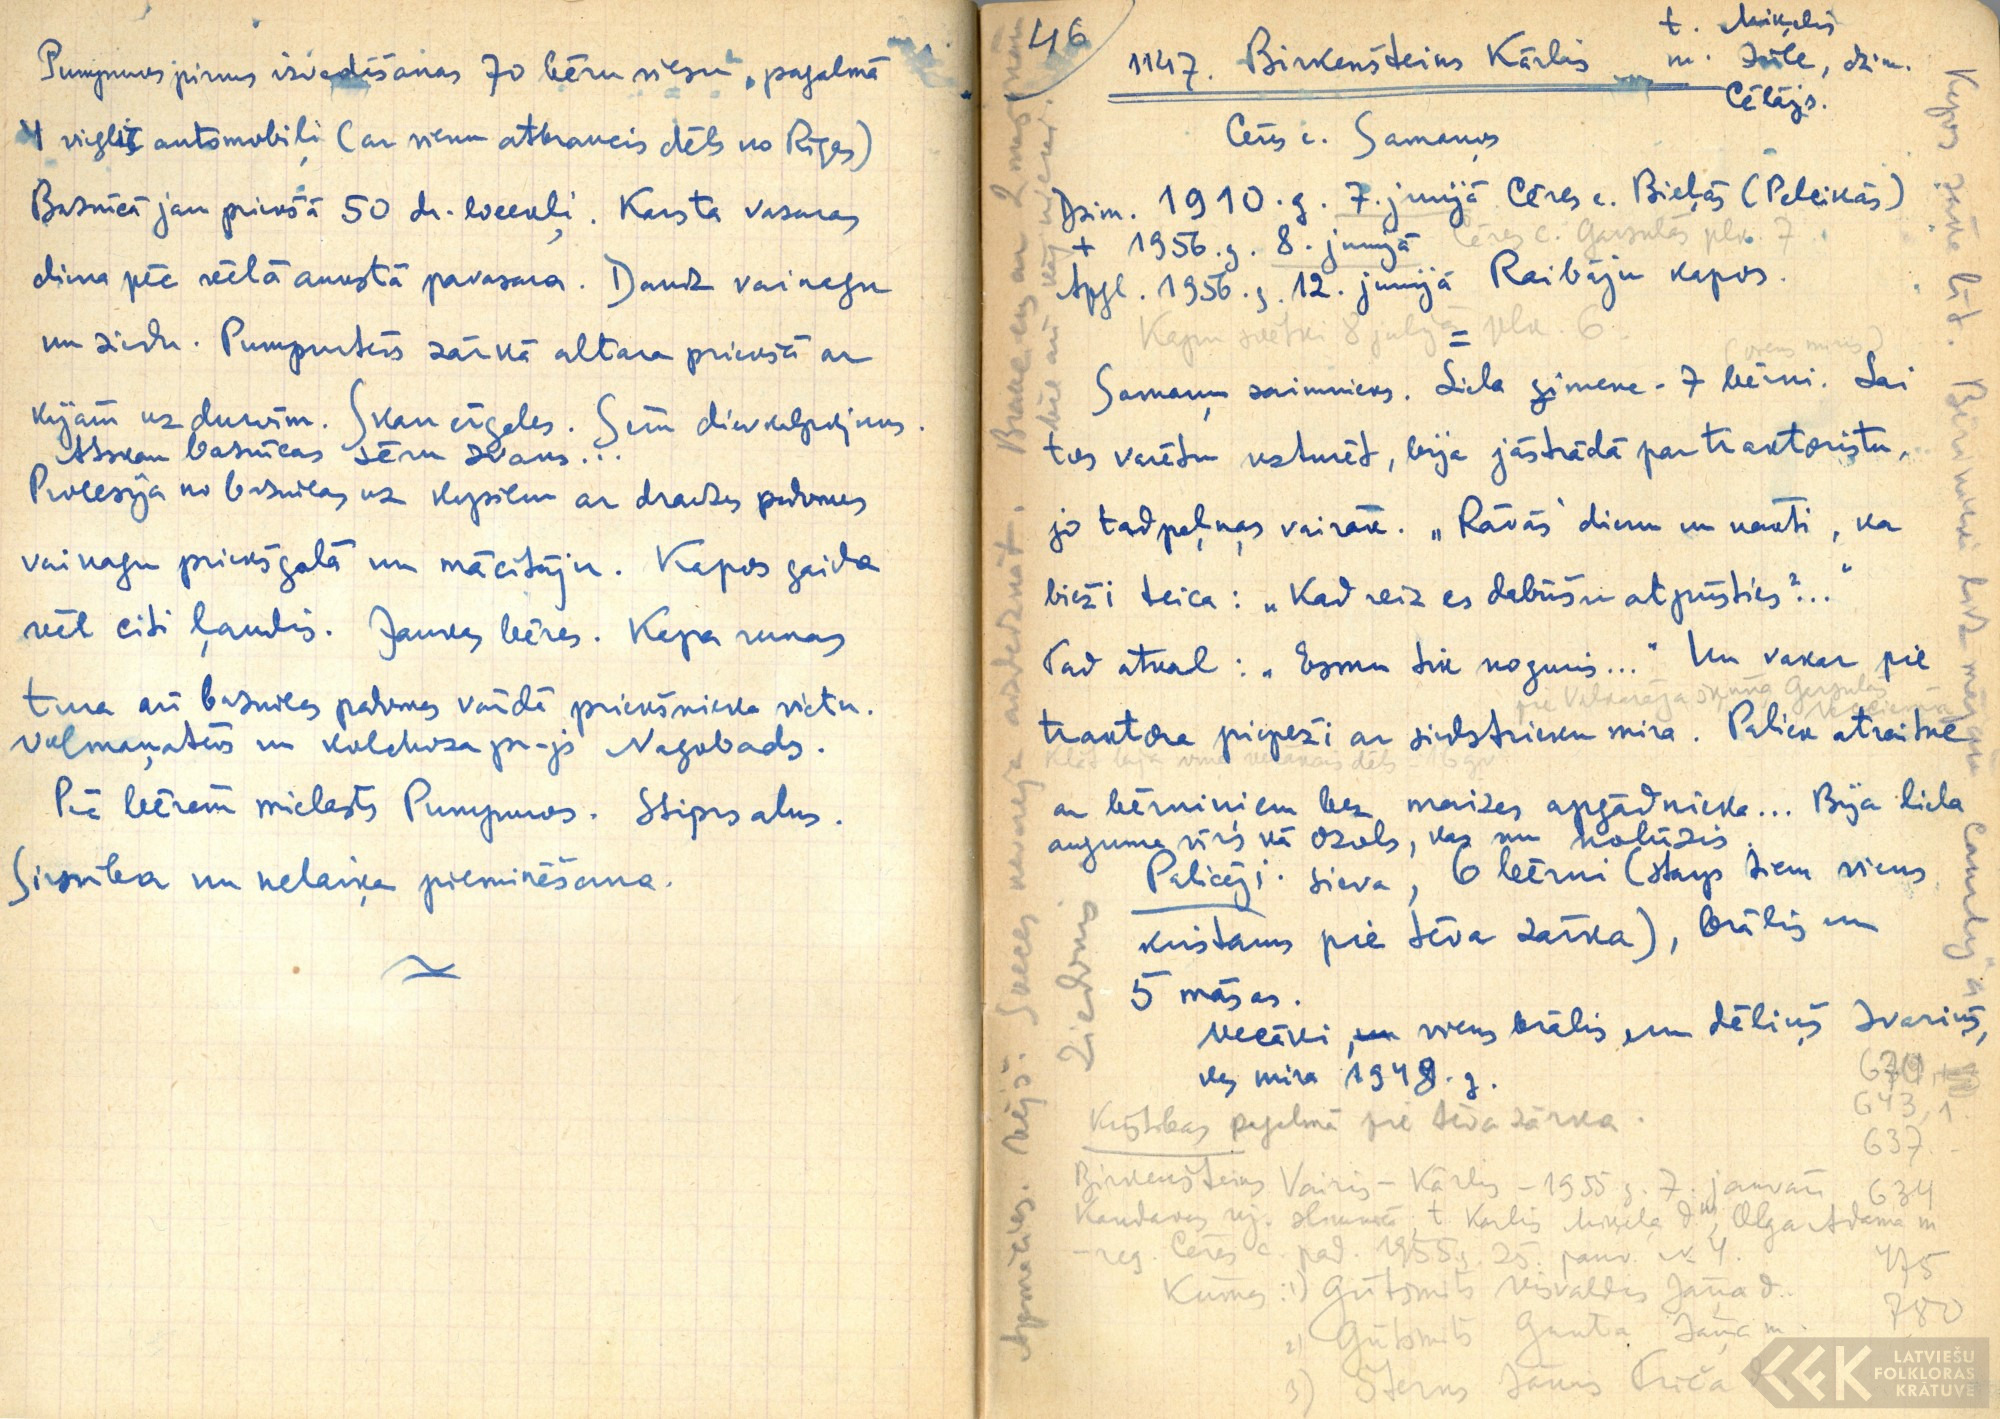 Pumpuros pirms izvadīšanas 70 bēru viesu, pagalmā
4 vieglie automobiļi (ar vienu atbraucis dēls no Rīgas)
Baznīcā jau priekšā 50 dr. locekļi. Karsta vasaras
diena pēc vēlā aukstā pavasara. Daudz vainagu
un ziedu. Pumpurtēvs zārkā altāra priekšā ar
kājām uz durvīm. Skan ērģeles. Sēru dievkalpojums.
Atskan baznīcas sēru zvans...
Procesija no baznīcas uz kapiem ar draudzes padomes
vainagu priekšgalā un mācītāju. Kapos gaida
vēl citi ļaudis. Jaukas bēres. Kapa runas
tura arī baznīcas padomes vārdā priekšnieka vietn.
Vilmaņtēvs un kolchoza pr-js Nagobads.
Pēc bērēm mielasts Pumpuros. Stiprs alus.
Sirsnība un nelaiķa pieminēšana.
46
1147. Birkenšteins Kārlis
t. Miķelis
m. Jūle, dzim.
Cēlājs.
Cēres c. Samaņos
Dzim. 1910. g. 7. jūnijā Cēres c. Bieļās (Peleikās)
+ 1956. g. 8. jūnijā Cēres c. Garzulās plv. 7
Apgl. 1956. g. 12. jūnijā Raibāju kapos.
Kapu svētki 8 jūlijā plk. 6.
=
(viens miris)
Samaņu saimnieks. Liela ģimene - 7 bērni. Lai
tos varētu uzturēt, bija jāstrādā par traktoristu,
jo tad peļņas vairāk. „Rāvās" dienu un nakti, ka
bieži teica: „Kad reiz es dabūšu atpūsties?..."
Tad atkal: „Esmu tik noguris..." Un vakar pie
pie Vilkarāja Garzulās
traktora piepeži ar sirdstrieku mira. Paliek atraitne
Klāt bija viņa vecākais dēls - 16 g.v.
ar bērniņiem bez maizes apgādnieka... Bija liela
auguma vīrs kā ozols, kas nu nolūzis.
Palicēji: sieva, 6 bērni (starp tiem viens
kristāms pie tēva zārka), brālis un
5 māsas.
Vecāki, viens brālis un dēliņš Ivariņš,
kas mira 1948. g.
Kristības pagalmā pie tēva zārka.
Birkenšteins Vairis - Kārlis - 1955 g. 7. janvārī
Kandavas raj. slimnīcā, t. Kārlis Miķeļa d., m. Olga Ādama m
- reg. Cēres c. pad. 1955 g. 25. janv. № 4.
Kūmas: 1) Gūtšmits Visvaldis Jāņa d.
2) Gūtšmits Gunta Jāņa m.
3) Šterns Jānis Friča d.
670, +
643, 1
637 -
634
475
780
LATVIEŠU
FOLKLORAS
KRĀTUVE